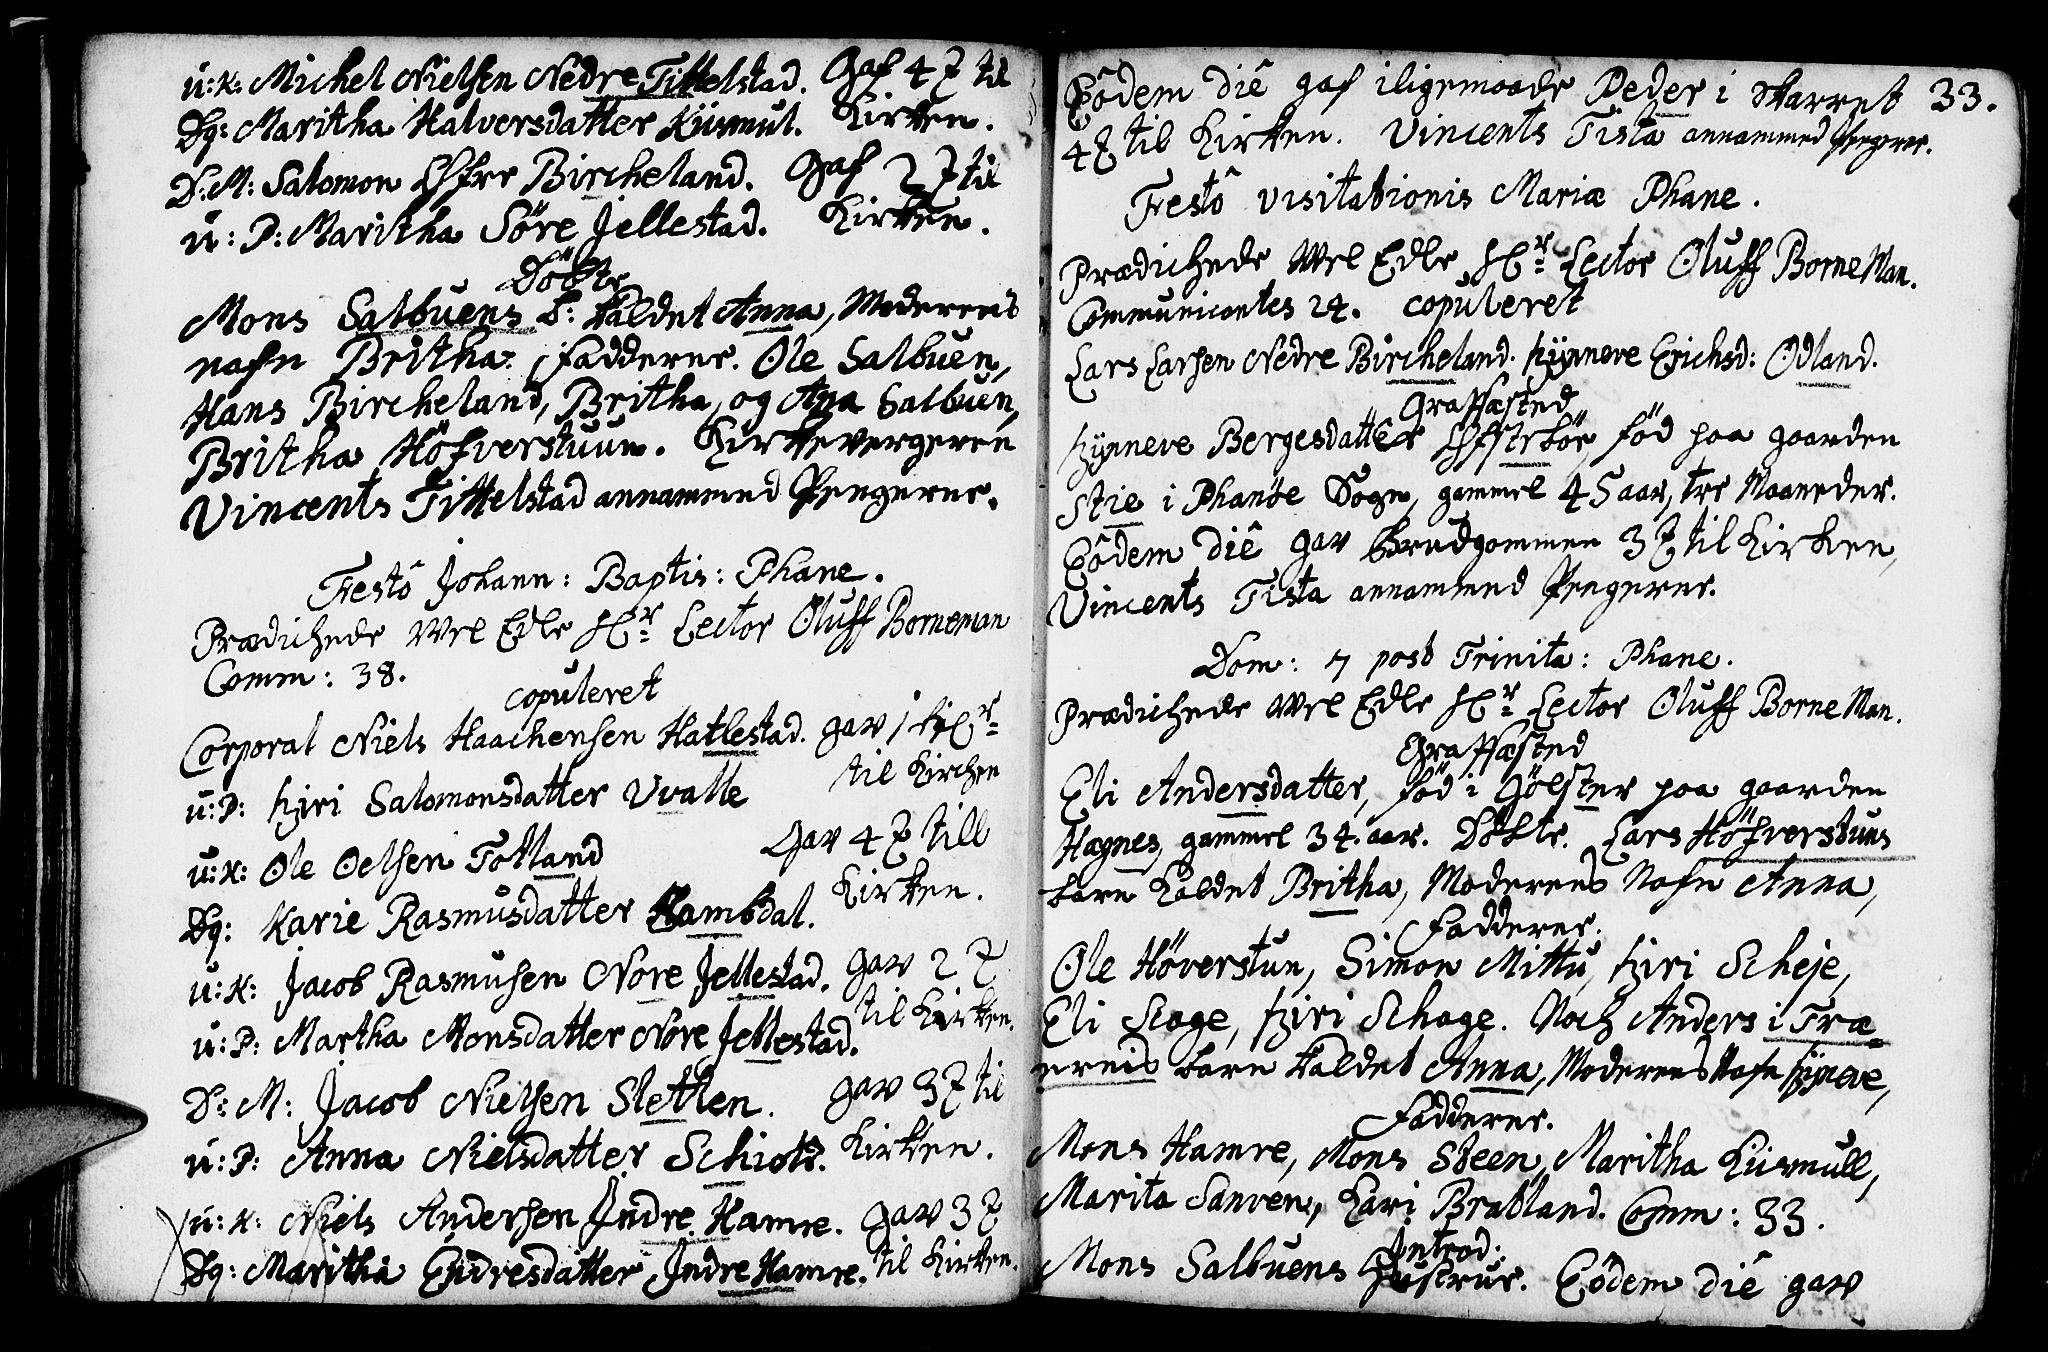 u: K: Michel Nielsen Nedre Tittelstad. Gaf 4 ℥ til
Dg: Maritha Halversdatter Kiismul. Kirken.
D: M: Salomon Bircheland. Gaf 2 ℥ til
u: P: Maritha Söre Jellestad. Kirken.
Döbte
Mons Salbuens b: kaldet Anna, Moderens
nafn Britha. Faddere. Ole Salbuen,
Hans Bircheland, Britha, og Ana Salbuen,
Britha Höfverstuun. Kirkevergeren
Vincents Tittelstad annammed Pengerne.
Festô Johann: Baptis: Phane.
Prædichede Wel Edle Hr Lector Oluff Borneman
Comm: 38.
copuleret
Corporal Niels Haachensen Hatlestad. gav 1
til Kirchen
u: P: Siri Salomonsdatter Vvalle
u: K: Ole Oelsen Totland gav 4 ℥ till
Dg: Karie Rasmusdatter Hambdal. Kirken.
u: K: Jacob Rasmusen Nore Jellestad. gav 2 ℥
u: P: Martha Monsdatter Nore Jellestad. til Kirken.
D: M: Jacob Nielsen Sletten. gav 3 ℥ til
u: P: Anna Nielsdatter Schiold. Kirken.
u: K: Niels Andersen Indre Hamre. gav 3 ℥
Dg: Maritha Endresdatter Indre Hamre. til Kirken.
Eôdem diê gaf iligemaade Peder i Skarret 33.
4 ℥ til Kirken. Vincents Tista annammed Pengerne.
Festô visitationis Mariæ Phane.
Prædichede Wel Edle Hr Lector Oluff BorneMan.
Communicantes 24. copuleret
Lars Larsen Nedre Bircheland. Synneve Erichsd: Ödland.
Graffæsted
Synneve Bergesdatter föd paa gaarden
Stie i Phanöe Sogn, gammel 45 aar, tre Maaneder.
Eôdem diê gav Brudgommen 3 ℥ til Kirken,
Vincents Tista annammed Pengerne.
Dom: 7 post Trinita: Phane.
Prædichede Wel Edle Hr Lector Oluff BorneMan.
Graffæsted
Eli Andersdatter, föd i Jölster paa gaarden
Hægnes, gammel 34. aar. Döbte. Lars Höfverstuns
barn kaldet Britha, Moderens Nafn Anna,
Fadderer.
Ole Höverstun, Simon Mittu, Siri Scheje,
Eli Skage, Siri Schage. Noch Anders i Træ
ereis barn kaldet Anna, Moderens Nafn Synneve,
Fadderer.
Mons Hamre, Mons Steen, Maritha Kiismull,
Marita Sanven, Kari Bratland. Comm: 33.
Introd:
Mons Salbuens Hustrue. Eôdem diê gav